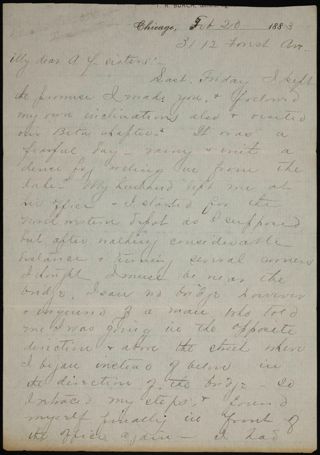 Chicago, Feb 20 1883
3112 Forest Ave.
My dear A Y. sisters:-
Last Friday I kept
the promise I made you, & followed
my own inclinations also & visited
our Beta chapter. It was a
fearful day - rainy & with a
dense fog rolling in from the
lake. My husband left me at
his office & I started for the
North western Depot as I supposed
but after walking considerable
distance & turning several corners
I thought I must be near the
bridge. I saw no bridge however
& inquired of a man who told
me I was going in the opposite
direction & above the street where
I began instead of below in
the direction of the bridge - So
I retraced my steps & found
myself finally in front of
the office again - I had